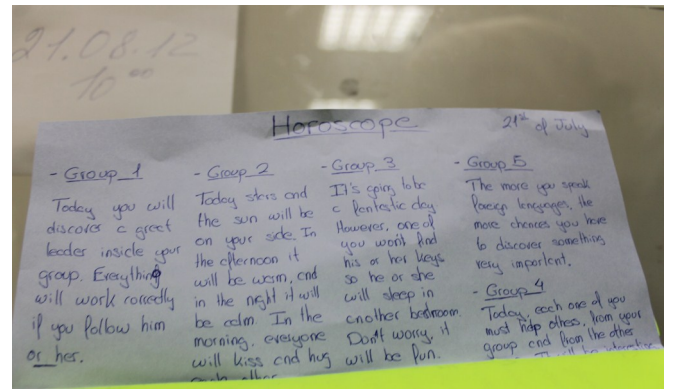 21.08.12
10 00
Horoscope
21st of July
- Group 1
Today you will
discover a great
leader inside your
group. Everything
will work correctly
if you follow him
or her.
- Group 2
Today stars and
the sun will be
on your side. In
the afternoon it
will be warm, and
in the night it will
be calm. In the
morning, everyone
will kiss and hug
each other
- Group 3
It's going to be
a fantastic day
However, one of
you won't find
his or her keys
so he or she
will sleep in
another bedroom.
Don't worry, it
will be fun.
- Group 5
The more you speak
foreign languages, the
more chances you have
to discover something
very important.
- Group 4
Today, each one of you
must help others, from your
group and from the other